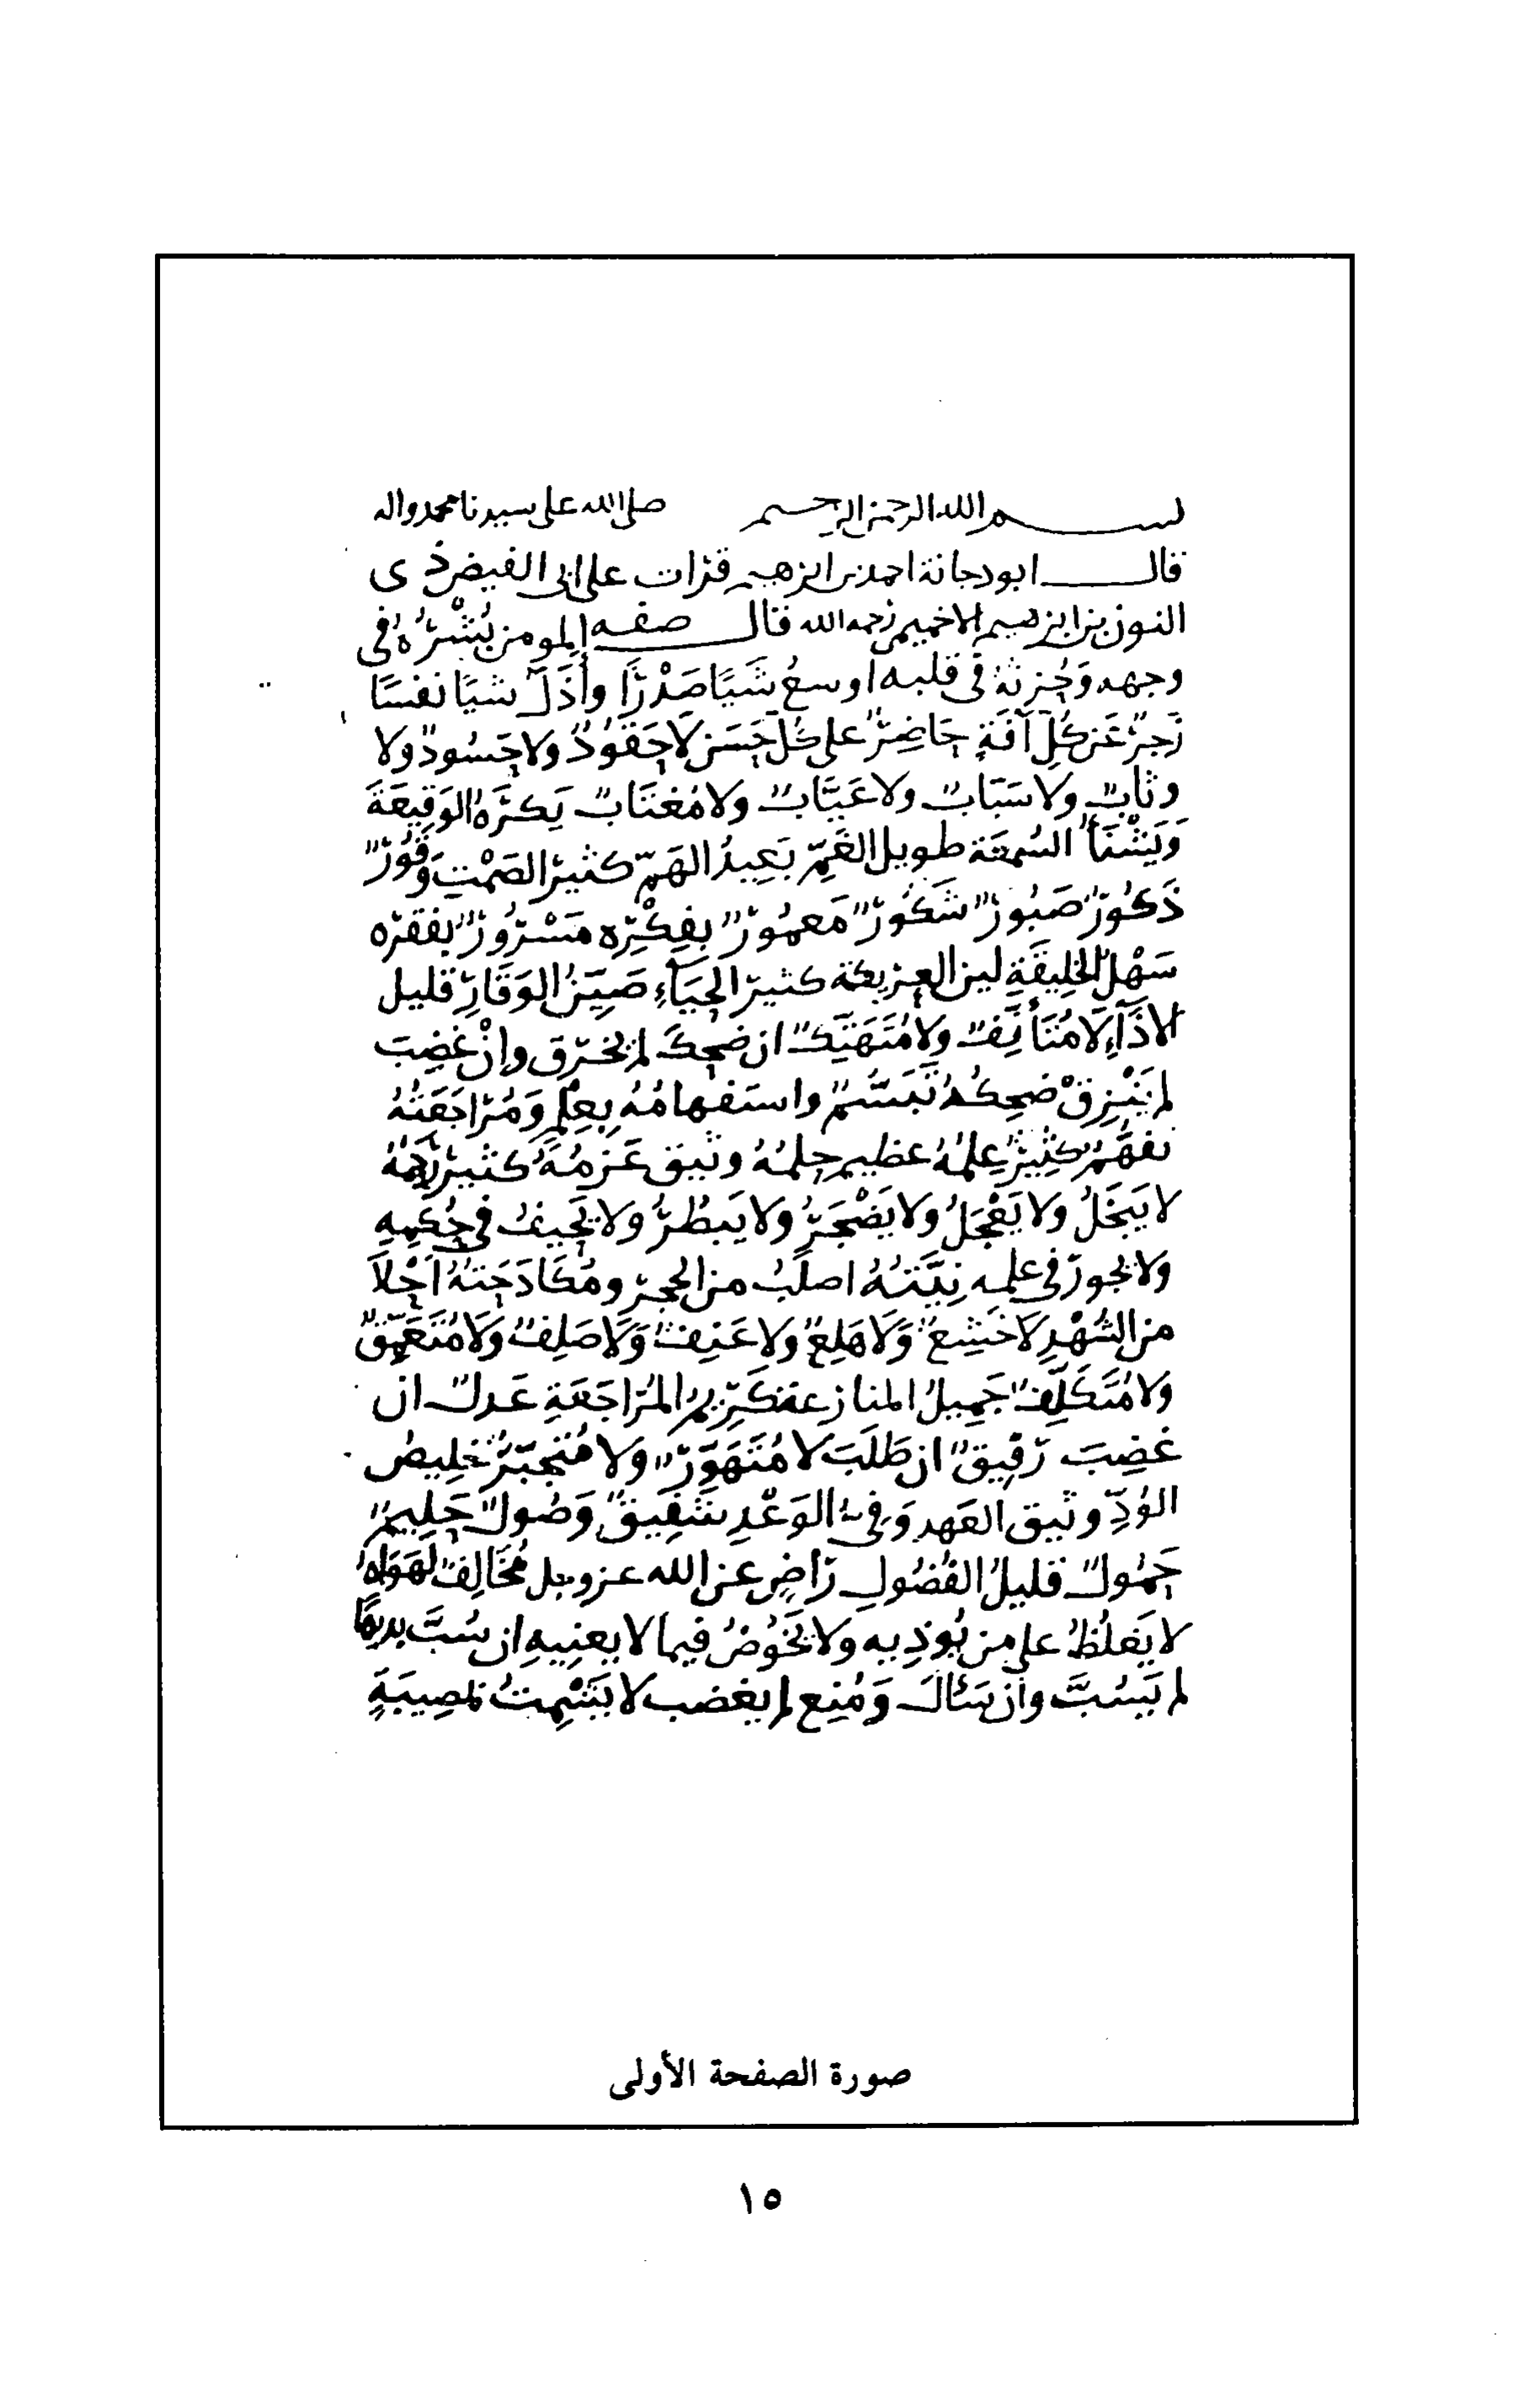 بسم الله الرحمن الرحيم صلى الله على سيدنا محمد واله
قال ابو دجانة احمد بن ابرهيم قرات على ابى الفيض ذى
النون بن ابرهيم الاخميمى رحمه الله قال صفه المومن بُشْرُهُ فى
وجهه وَحُزنهُ فى قلبه اوسعُ شَيًا صَدْرًا وأذَلّ شيًا نفسًا
زَجِرٌ عَن كُلِّ آفَةٍ حَاضِرٌ على كُلّ حَسَن لَا حَقُودٌ ولا حَسُودٌ ولا
وثابٌ ولا سَبَابٌ ولا عَيَّابٌ ولا مُغتَابٌ يَكرَهُ الوَقِيعَةَ
وَيَشْنَأُ السُمعَة طويل الغَمّ بَعِيدُ الهَمّ كثير الصَمْتِ وَقُورٌ
ذَكُورٌ صَبُورٌ شَكُورٌ مَعمُورٌ بفِكْرِه مَسْرُورٌ بفقره
سَهْلُ الخلِيقَةِ لين العريكة كثير الحيَآءِ صَيِّنُ الوَقَارِ قليل
الاذَآءِ لَا مُتَأنِّفٌ ولا مُتَهَتِّكٌ ان ضحِكَ لم يخرق وإنْ غضِبَ
لم يَنْزِقْ ضحِكُهُ تَبَسُّمٌ واستفهامُهُ بعِلمٍ وَمُرَاجَعَتُهُ
تفهّمٌ كثِيرٌ عِلمُهُ عظيم حِلمُهُ وثيق عَزمُهُ كثير
لا يَبخَلُ ولا يَعْجَلُ ولا يَضْجَرُ ولا يَبطُرُ ولا يَحِيفُ فى حُكمِهِ
ولا يجور فى علمه نِيَّتُهُ اصلَبُ من الحجر ومُكَادَحَتهُ احْلَا
من الشُهْدِ لَا خَشِعٌ وَلَا هَلِعٌ ولا عَنِفٌ وَلَا صَلِفٌ وَلَا مُتَعَمّقٌ
ولا مُتَكَلِّفٌ جَمِيلُ المنازعة كَرِيمُ المُرَاجَعَةِ عَدلٌ ان
غضِبَ رَفيقٌ ان طَلَبَ لا مُتَهَوّرٌ ولا مُتجَبّرٌ خليصُ
الوُدِّ وثيق العَهد وَفىُّ الوَعْدِ شَفِيقٌ وَصُولٌ حَلِيمٌ
حَمُولٌ قليلُ الفُضُولِ رَاضٍ عن الله عز وجل مُخَالِفٌ لهَوَاهُ
لا يَغلُظُ على من يُوذِيه ولا يَخُوضُ فيما لا يعنِيهِ ان سُبَّ بديهًا
لم يَسُبَّ وان سَئَالَ وَمُنِعَ لم يغضب لا يَشْمتُ بمصِيبَةٍ
صورة الصفحة الأولى
١٥